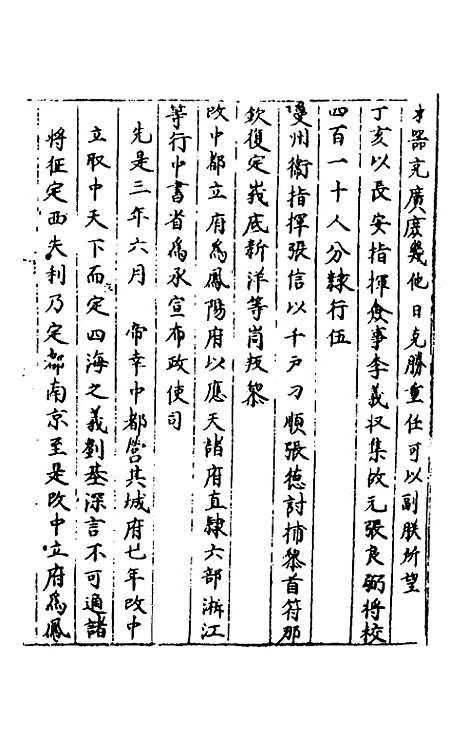 才器充廣庶幾他日克勝重任可以副朕所望
丁亥以長安指揮僉事李義収集故元張良弼將校
四百一十人分隸行伍
州衞指揮張信以千戶刁順張德討捕黎首符那
欽復定峩底新洋等峝叛黎
改中都立府爲鳳陽府以應天諸府直隸六部浙江
等行中書省爲承宣布政使司
先是三年六月 帝幸中都營其城府七年改中
立取中天下而定四海之義劉基深言不可適諸
將征定西失利乃定都南京至是改中立府爲鳳